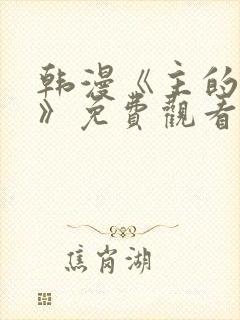 韩漫《主的
》免費觀看
焦岗湖